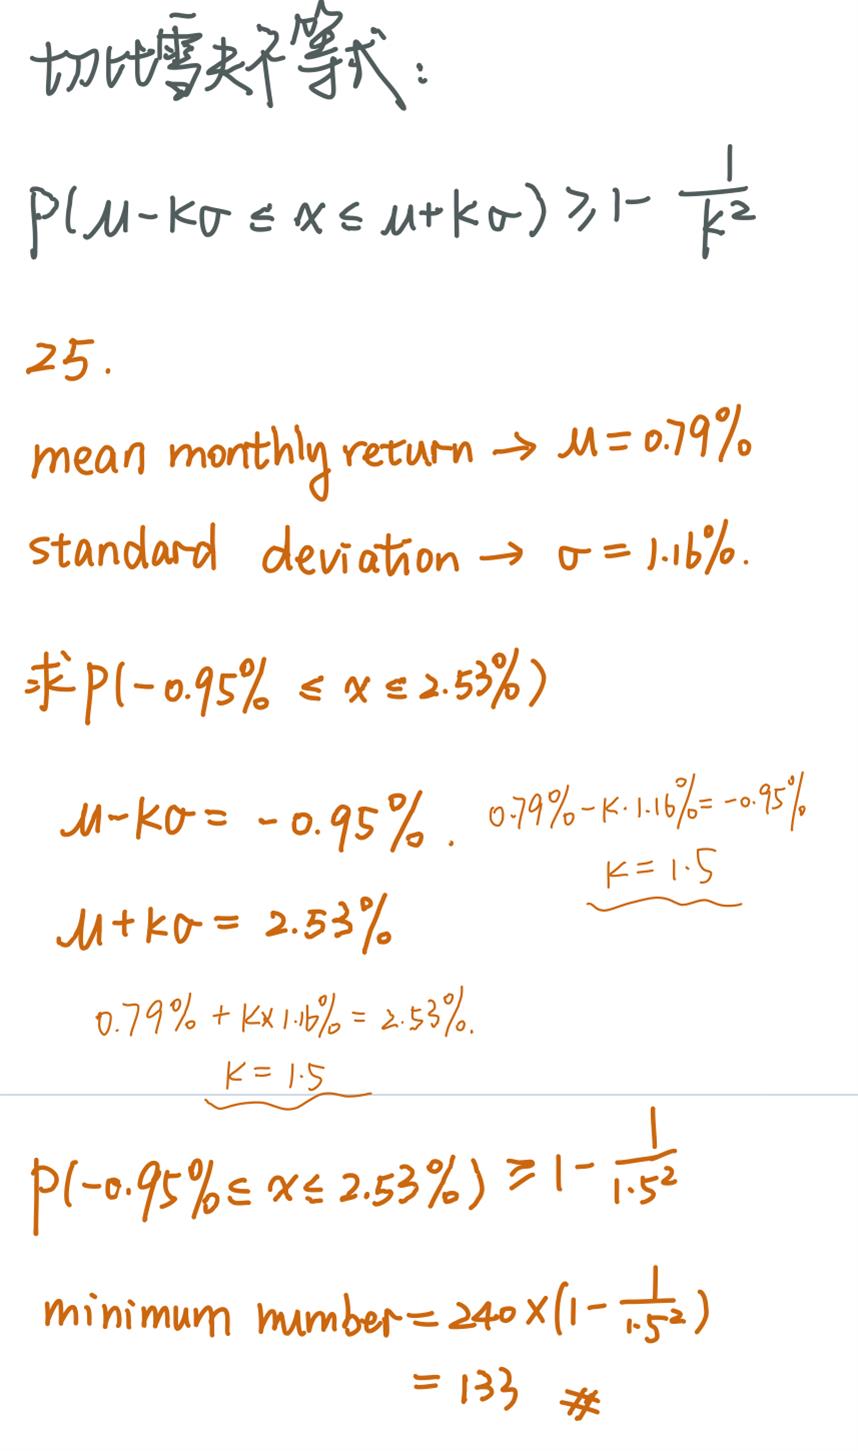 切比雪夫不等式：
P(μ-kσ ≤ x ≤ μ+kσ) ≥ 1- 1/k²
25.
mean monthly return → μ=0.79%
standard deviation → σ = 1.16%.
求P(-0.95% ≤ x ≤ 2.53%)
μ-kσ = -0.95%.
0.79%-k·1.16%= -0.95%
k = 1.5
μ+kσ = 2.53%
0.79% + k×1.16% = 2.53%.
k = 1.5
P(-0.95% ≤ x ≤ 2.53%) ≥ 1- 1/1.5²
minimum number = 240×(1- 1/1.5²)
= 133 #